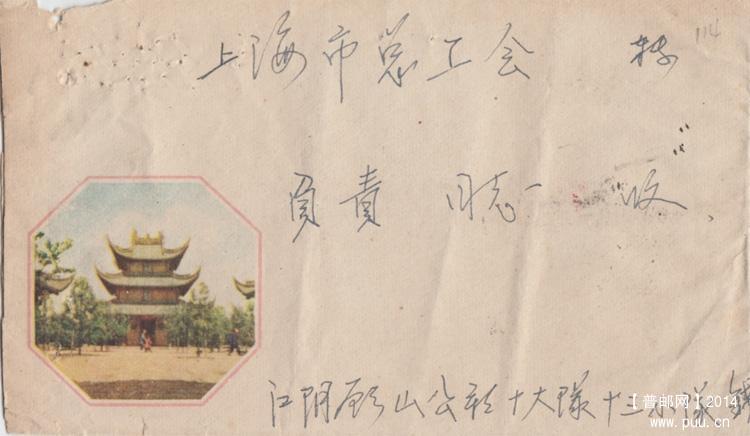 114
上海市总工会 转
負責 同志 收
江阴顾山公社十大隊十三小隊
【普邮网】2014
www.puu.cn